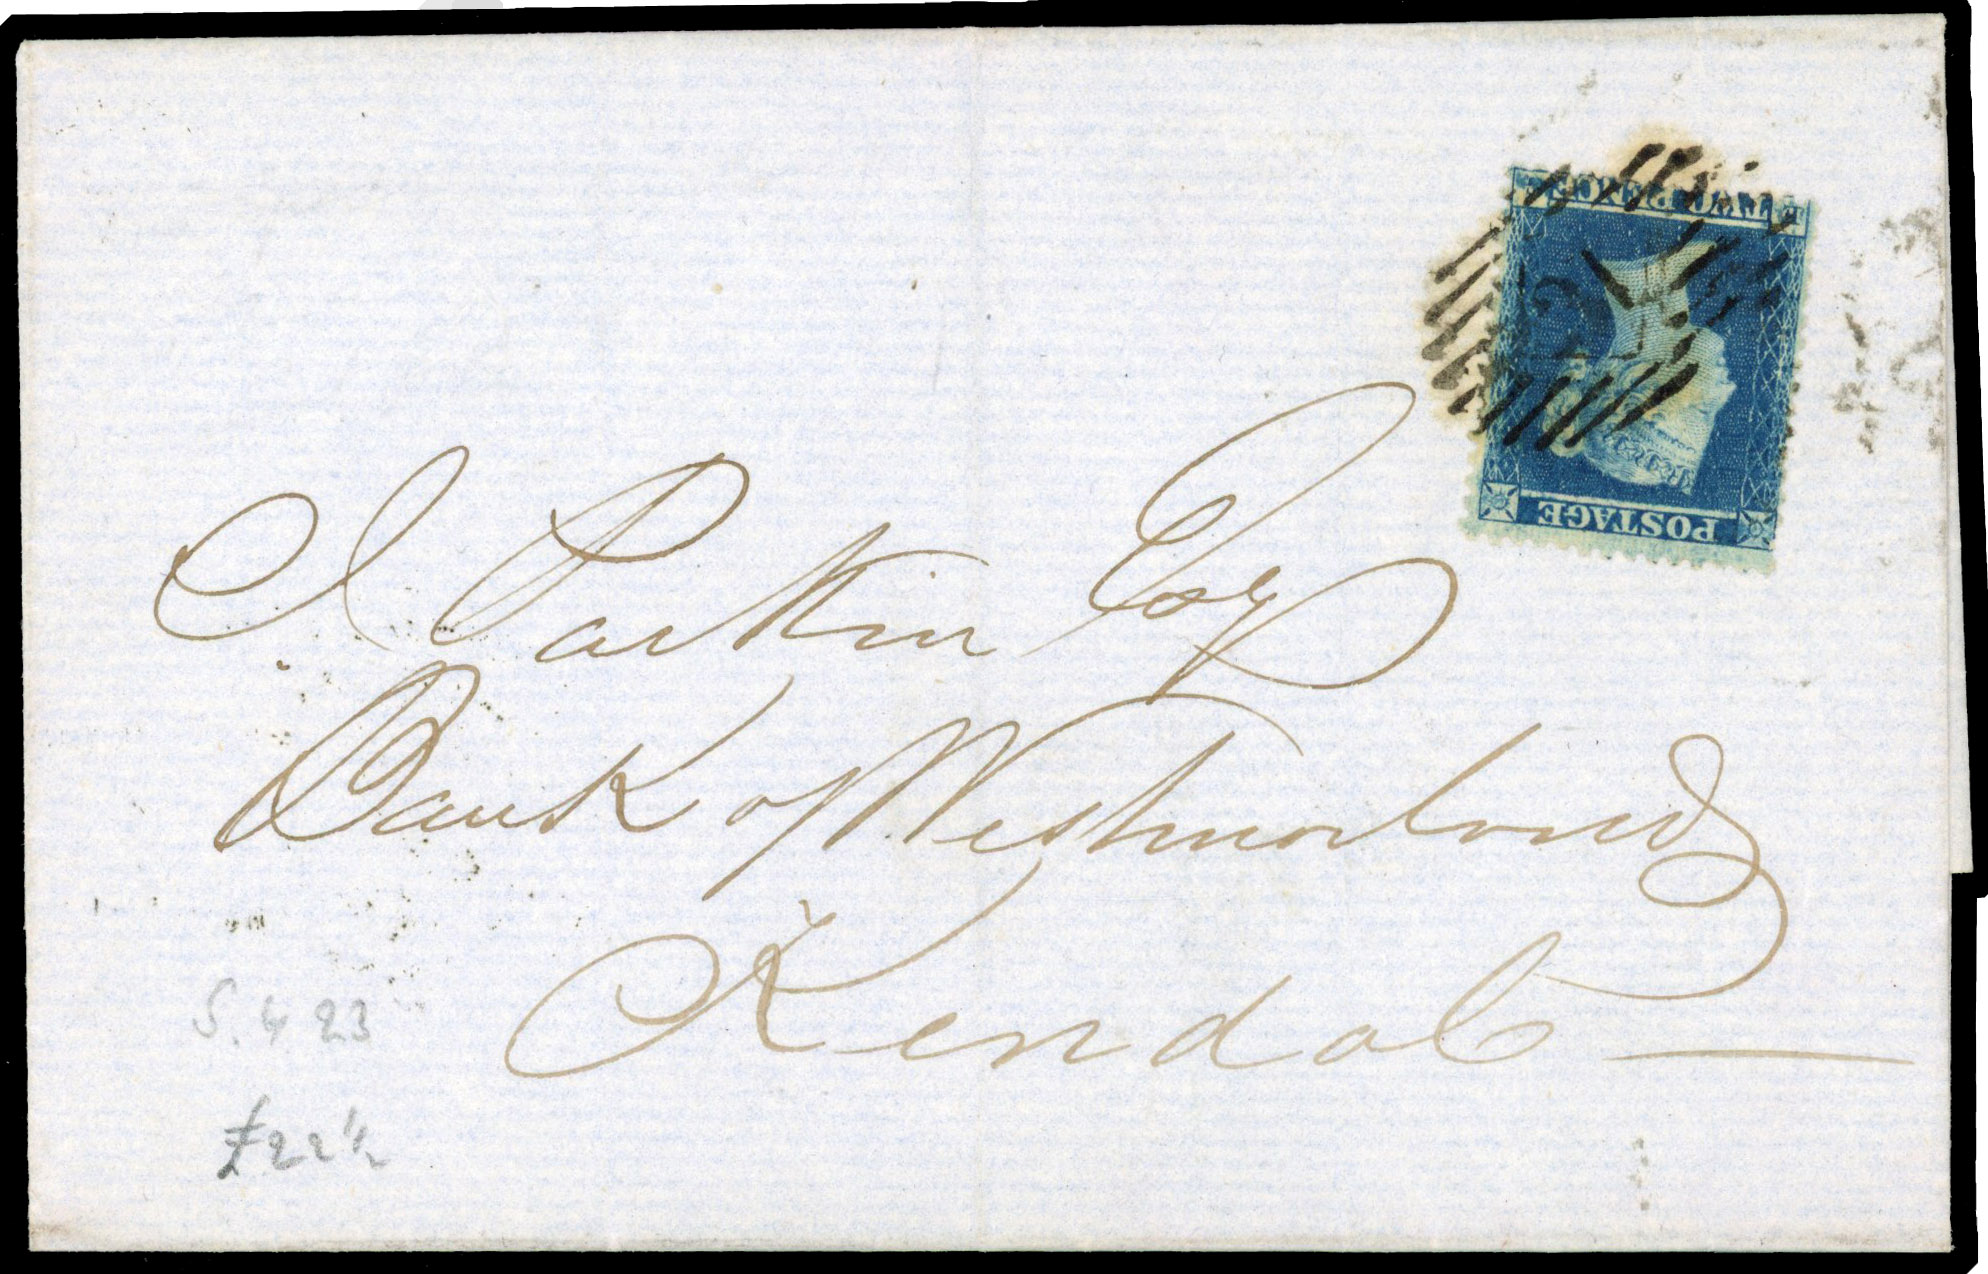 POSTAGE
TWO PENCE
J Parkin Esq
Bank of Westmorland
Kendal
S. G 23
£22½